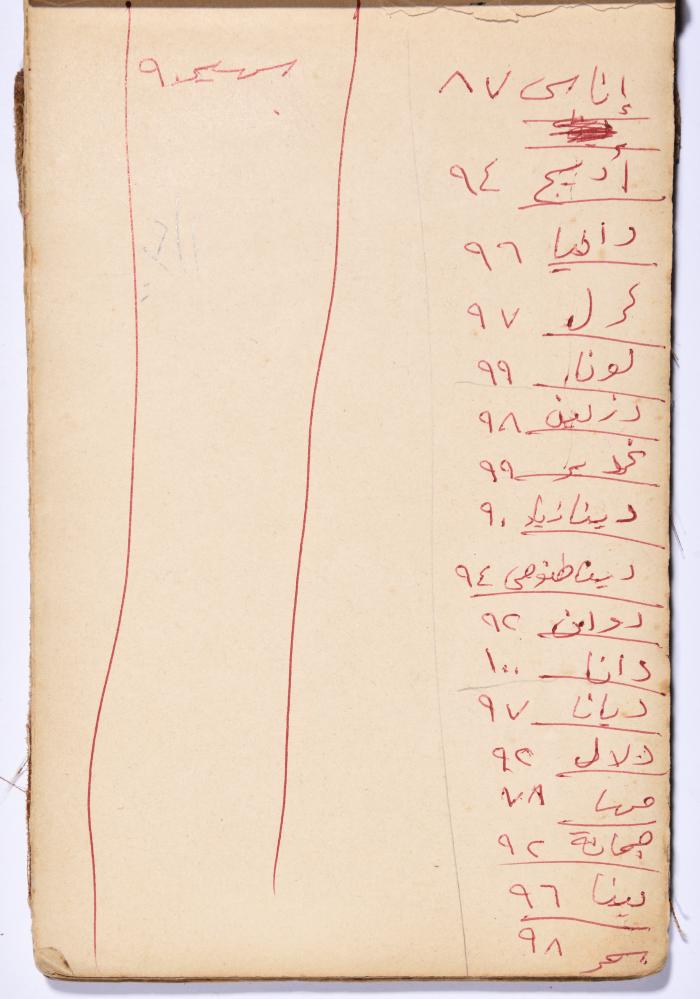 إناس ٨٧
أريج ٩٤
داليا ٩٦
كرل ٩٧
لونا ٩٩
دارين ٩٨
غدير ٩٩
دينا زياد ٩٠
دينا طنوحي ٩٤
روان ٩٢
دانا ١٠٠
ديانا ٩٧
دلال ٩٢
مها ٧٨
جمانة ٩٢
لينا ٩٦
سحر ٩٨
سهير ٩٠